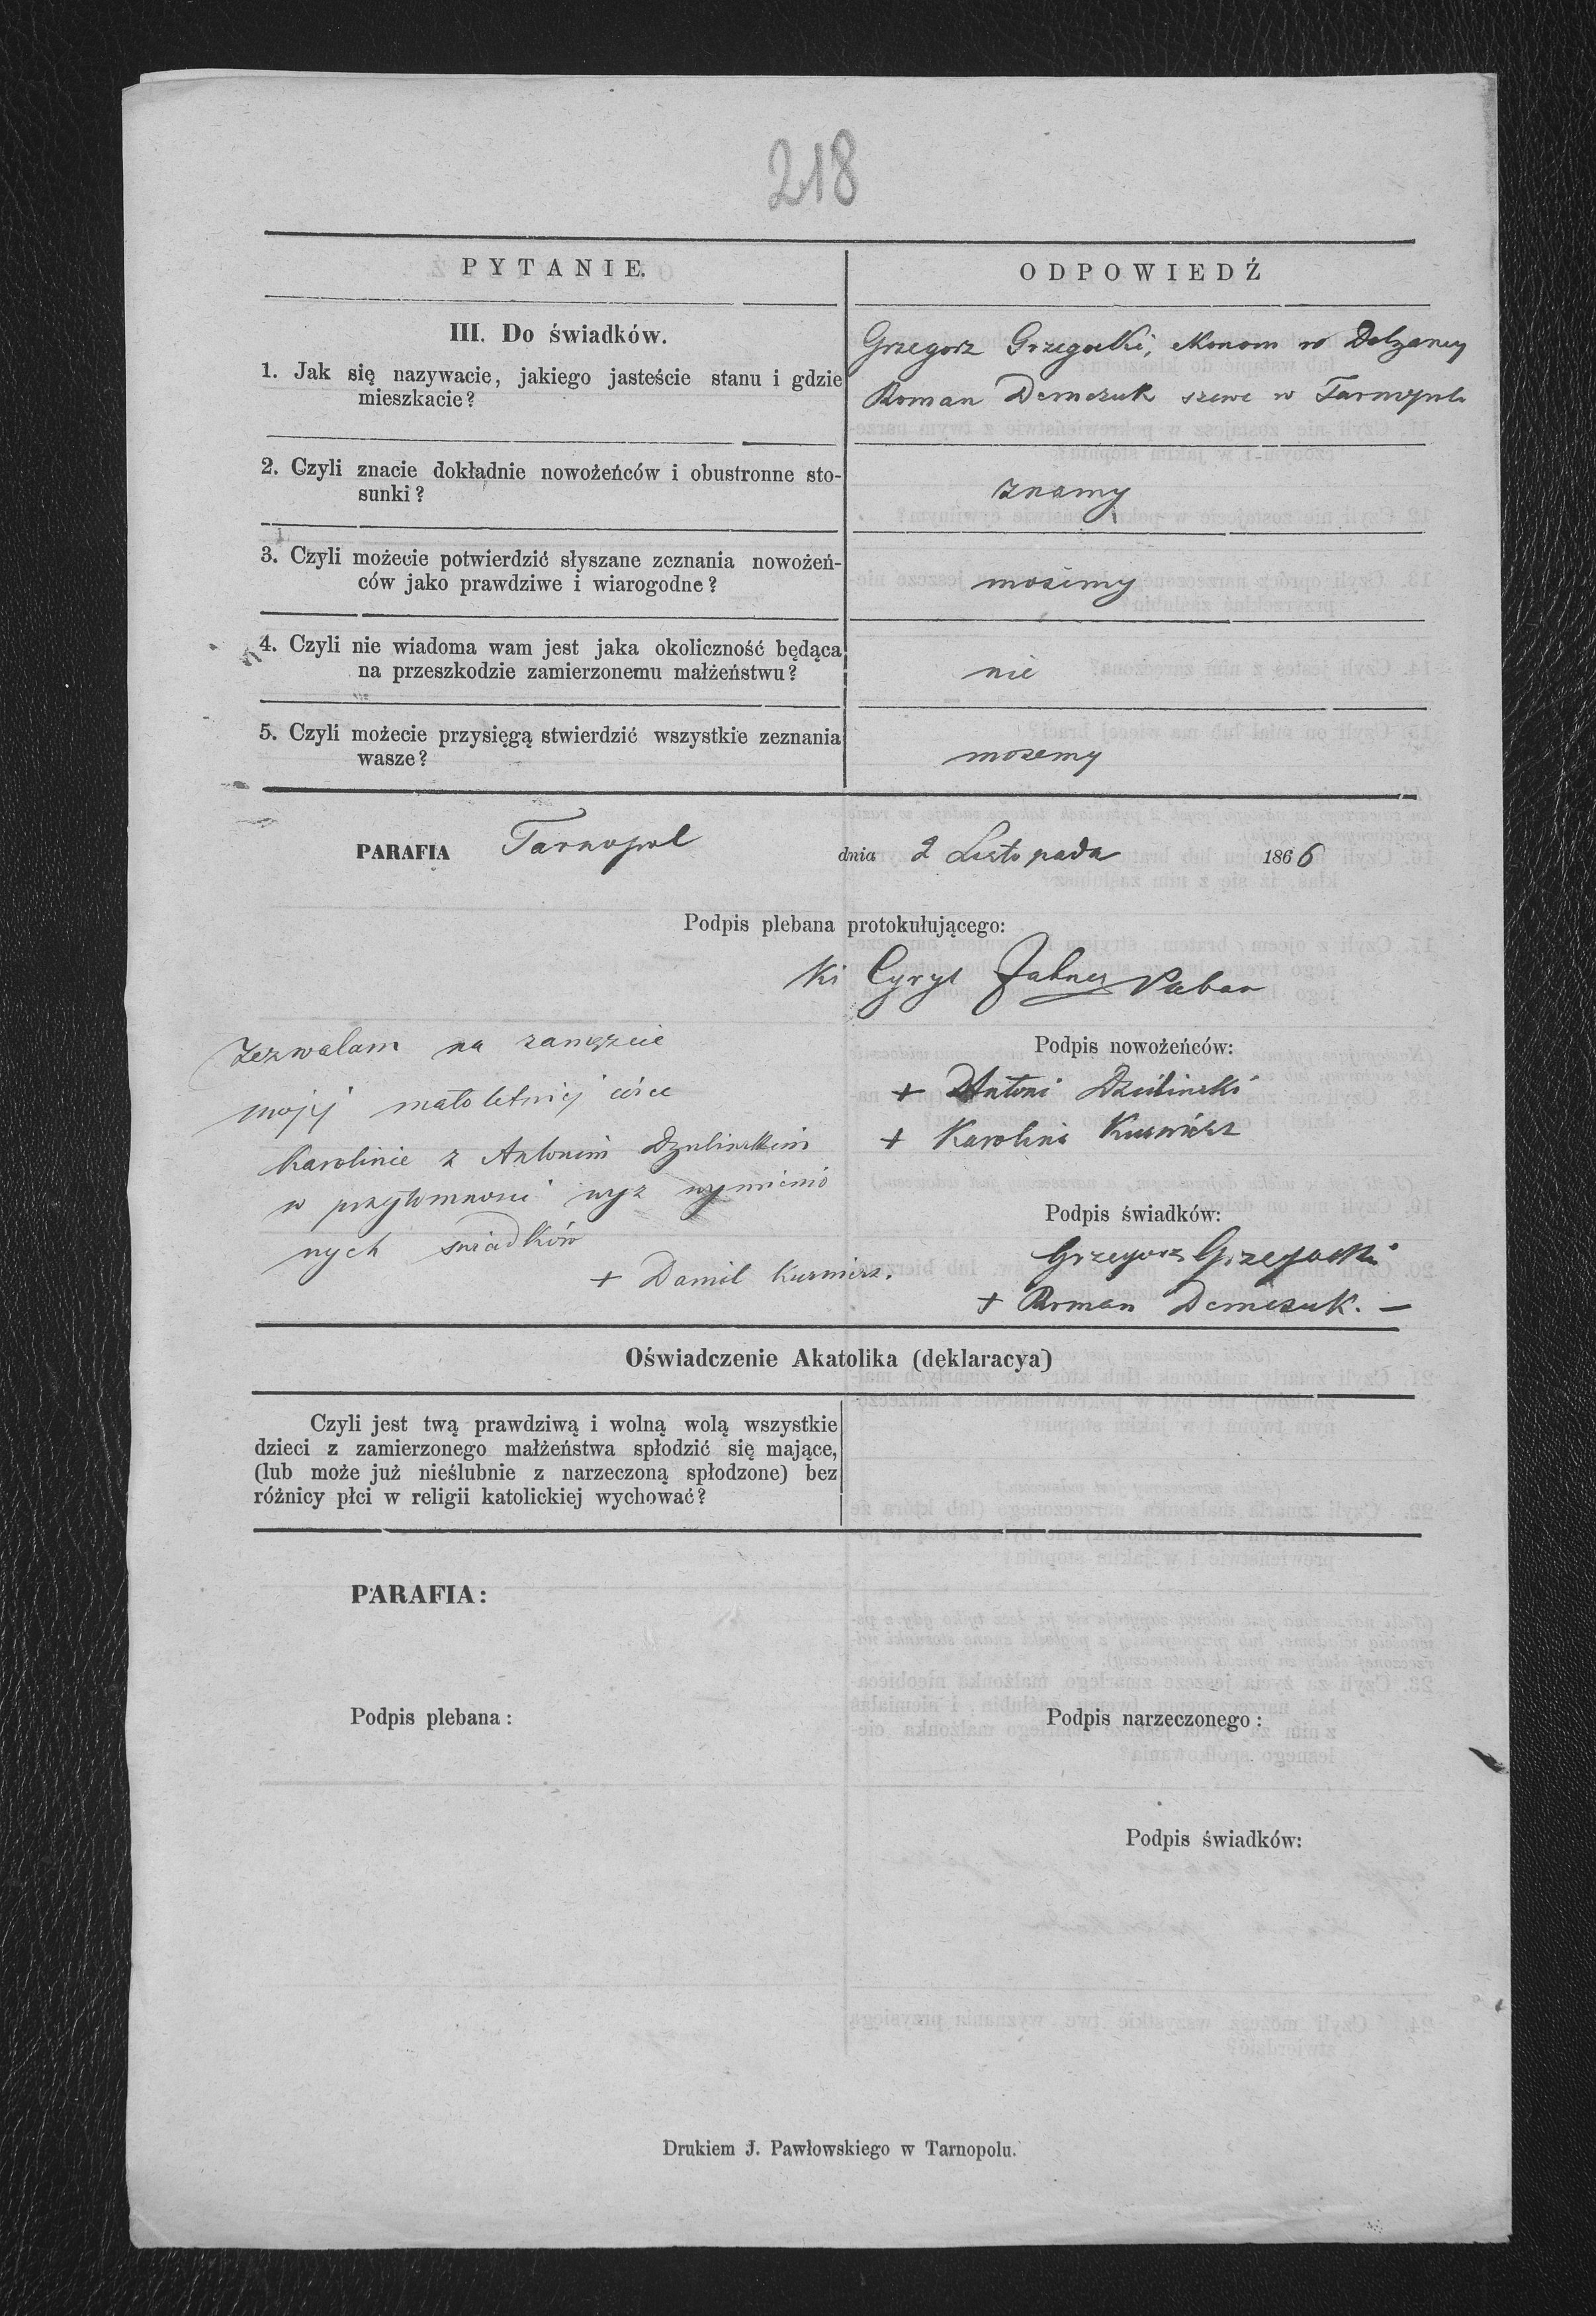 218
PYTANIE.
ODPOWIEDŹ
III. Do świadków.
1. Jak się nazywacie, jakiego jasteście stanu i gdzie
mieszkacie?
Grzegorz Grzegocki, ekonom w
Roman Demczuk szewc w Tarnopolu
2. Czyli znacie dokładnie nowożeńców i obustronne sto-
sunki?
znamy
3. Czyli możecie potwierdzić słyszane zeznania nowożeń-
ców jako prawdziwe i wiarogodne?
mozemy
4. Czyli nie wiadoma wam jest jaka okoliczność będąca
na przeszkodzie zamierzonemu małżeństwu?
nie
5. Czyli możecie przysięgą stwierdzić wszystkie zeznania
wasze?
mozemy
PARAFIA Tarnopol dnia 2 Listopada 1866
Podpis plebana protokułującego:
Cyryl
Zezwalam na zamęzcie
mojej małoletniej córce
Karolinie z Antonim Dzulinskim
w przytomnosci wyz wymienio
nych swiadków
+ Daniel Kusnierz.
Podpis nowożeńców:
+ Antoni Dzulinski
+ Karolina Kusnierz
Podpis świadków:
Grzegorz Grzegocki
+ Roman Demczuk. —
Oświadczenie Akatolika (deklaracya)
Czyli jest twą prawdziwą i wolną wolą wszystkie
dzieci z zamierzonego małżeństwa spłodzić się mające,
(lub może już nieślubnie z narzeczoną spłodzone) bez
różnicy płci w religii katolickiej wychować?
PARAFIA:
Podpis plebana:
Podpis narzeczonego:
Podpis świadków:
Drukiem J. Pawłowskiego w Tarnopolu.